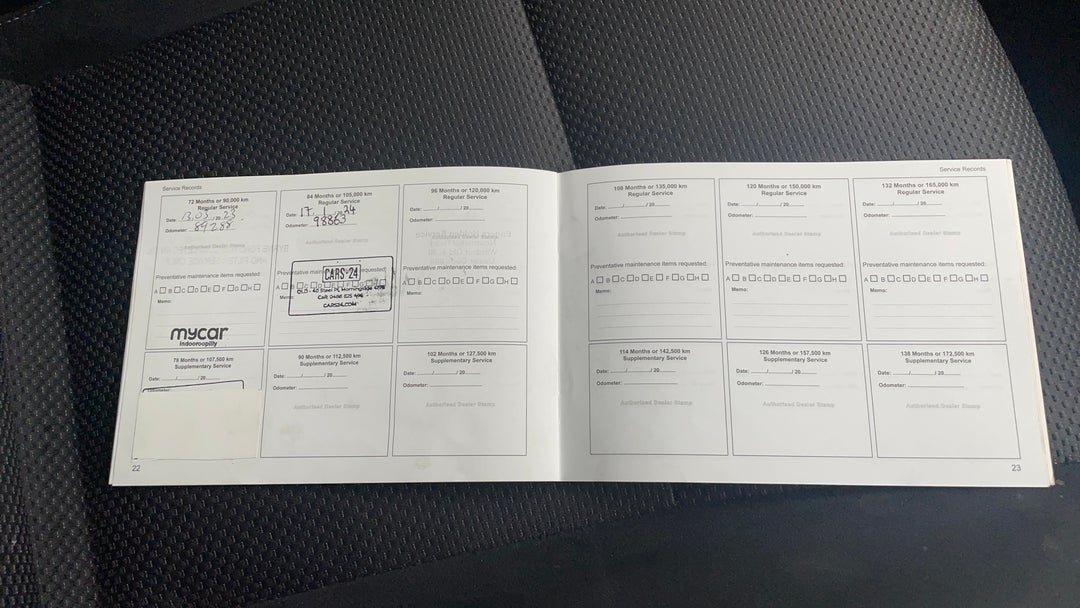 Service Records
72 Months or 90,000 km
Regular Service
Date: 13, 03, 20 23
Odometer: 89288
Authorised Dealer Stamp
Preventative maintenance items requested:
A B C D E F G H
Memo:
mycar
Indooroopilly
84 Months or 105,000 km
Regular Service
Date: 17 1 24
Odometer: 98863
Authorised Dealer Stamp
Preventative main requested:
CARS24
A B C D E F G H
QLD - 40 Steel Pl, Morningside
Call
CARS24.COM
96 Months or 120,000 km
Regular Service
Date: / / 20
Odometer:
Authorised Dealer Stamp
Preventative maintenance items requested:
A B C D E F G H
Memo:
78 Months or 107,500 km
Supplementary Service
Date: / / 20
Odometer:
90 Months or 112,500 km
Supplementary Service
Date: / / 20
Odometer:
Authorised Dealer Stamp
102 Months or 127,500 km
Supplementary Service
Date: / / 20
Odometer:
Authorised Dealer Stamp
22
Service Records
108 Months or 135,000 km
Regular Service
Date: / / 20
Odometer:
Authorised Dealer Stamp
Preventative maintenance items requested:
A B C D E F G H
Memo:
120 Months or 150,000 km
Regular Service
Date: / / 20
Odometer:
Authorised Dealer Stamp
Preventative maintenance items requested:
A B C D E F G H
Memo:
132 Months or 165,000 km
Regular Service
Date: / / 20
Odometer:
Authorised Dealer Stamp
Preventative maintenance items requested:
A B C D E F G H
Memo:
114 Months or 142,500 km
Supplementary Service
Date: / / 20
Odometer:
Authorised Dealer Stamp
126 Months or 157,500 km
Supplementary Service
Date: / / 20
Odometer:
Authorised Dealer Stamp
138 Months or 172,500 km
Supplementary Service
Date: / / 20
Odometer:
Authorised Dealer Stamp
23